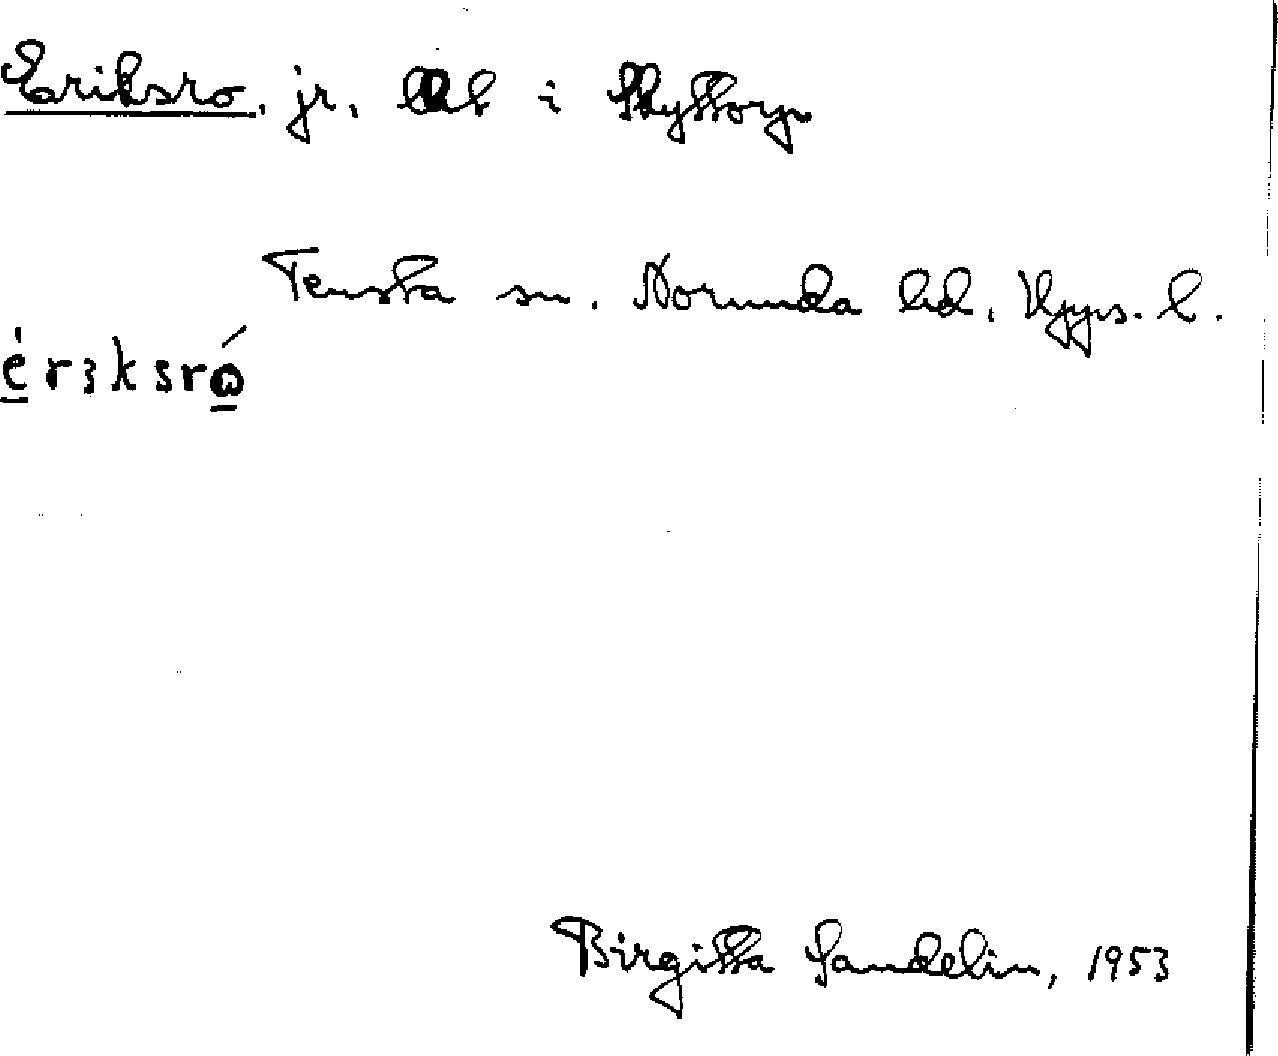 Eriksro, jr, lht i Skyttorp
Tensta sn. Norunda hd. Upps. l.
érɜksrώ
Birgitta Sandelin, 1953